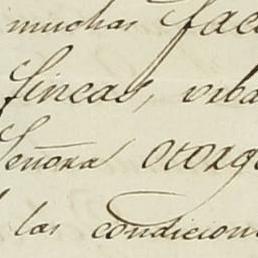 muchas fac
fincas, urba
Señora otorg
las condicion